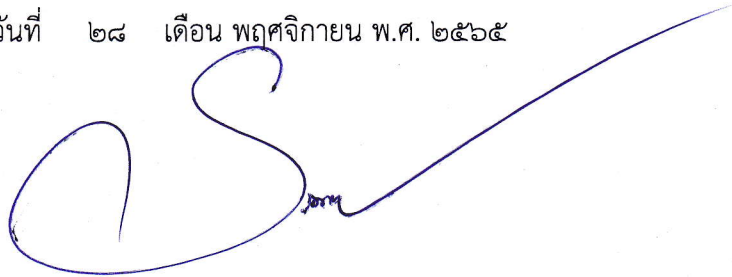 วันที่ ๒๘ เดือน พฤศจิกายน พ.ศ. ๒๕๖๕